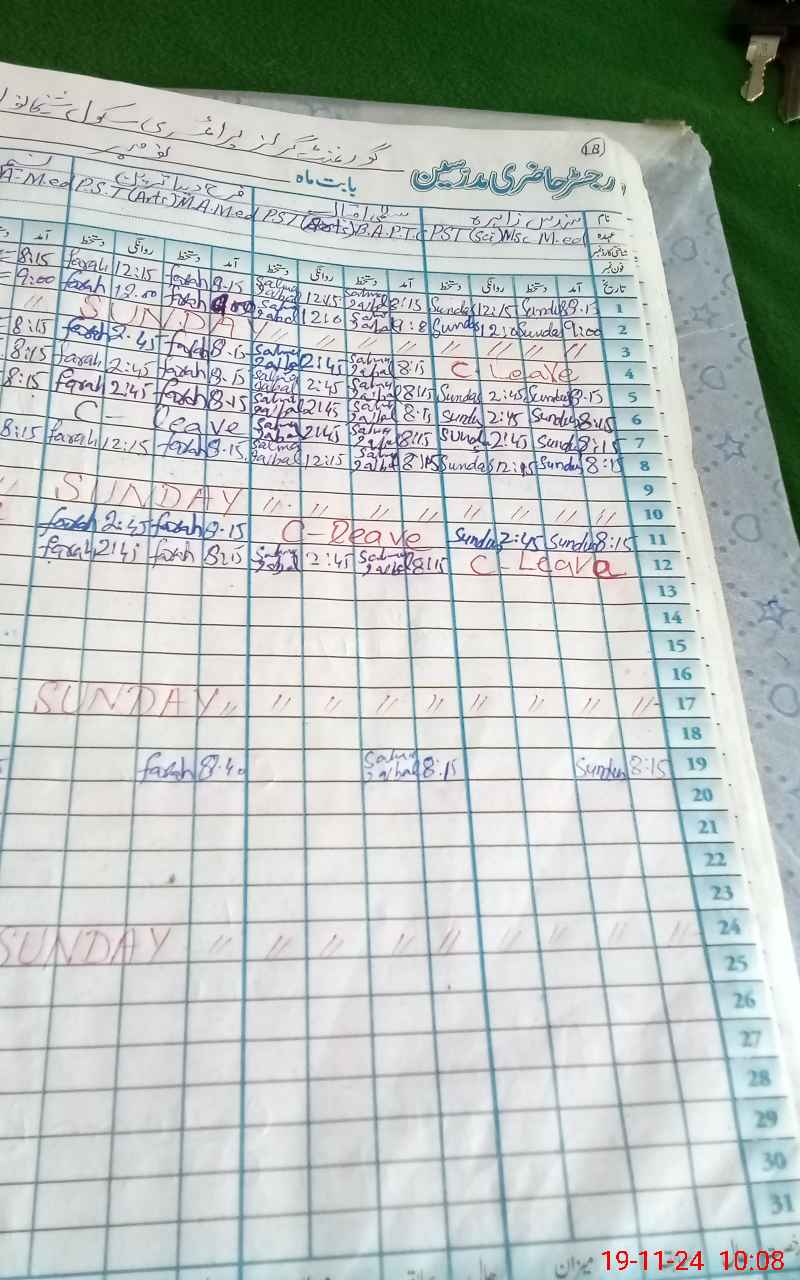 18
گورنمنٹ گرلز پرائمری سکول
رجسٹر حاضری مدرسین بابت ماہ نومبر
نام سندس زاہرہ سلمیٰ اقبال فرح دیبا
عہدہ PST (Sci) Msc M.ed PST B.A P.T.C P.S.T (Arts) M.A M.ed A-M.ed
شناختی کارڈ نمبر
فون نمبر
تاریخ آمد دستخط روانگی دستخط آمد دستخط روانگی دستخط آمد دستخط روانگی دستخط آمد
8:15 farah 12:15 farah 8.15 Salma Iqbal 12:15 Salma Iqbal 8:15 Sundas 12:15 Sundas 8.15 1
9:00 farah 12.00 farah Salma Iqbal Salma Iqbal Sundas Sundas 9:00 2
// SUNDAY // // // // // // // // 3
8:15 farah 2:45 farah 8.15 Salma Iqbal 2:45 Salma Iqbal 8:15 C-Leave 4
8:15 farah 2:45 farah 8.15 Salma Iqbal 2:45 Salma Iqbal 8:15 Sundas 2:45 Sundas 8.15 5
8:15 farah 2:45 farah 8.15 Salma Iqbal 2:45 Salma Iqbal 8:15 Sundas 2:45 Sundas 8:15 6
C-Leave Salma Iqbal 2:45 Salma Iqbal 8:15 Sundas 2:45 Sundas 8:15 7
8:15 farah 12:15 farah 8.15 Salma Iqbal 12:15 Salma Iqbal 8:15 Sundas 12:15 Sundas 8:15 8
9
// SUNDAY // // // // // // // // 10
farah 2:45 farah 8.15 C-Leave Sundas 2:45 Sundas 8:15 11
farah 2:45 farah 8:15 Salma Iqbal 2:45 Salma Iqbal 8:15 C-Leava 12
13
14
15
16
SUNDAY // // // // // // // // // 17
18
farah 8.40 Salma Iqbal 8:15 Sundas 8:15 19
20
21
22
23
SUNDAY // // // // // // // // // 24
25
26
27
28
29
30
31
میزان
19-11-24 10:08